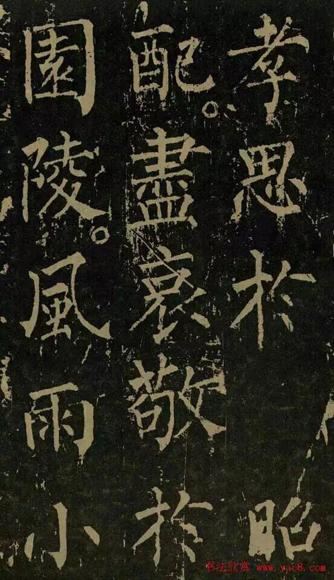 孝思於 昭
配。盡哀敬於
園陵。風雨小
书法欣赏 www.yac8.com